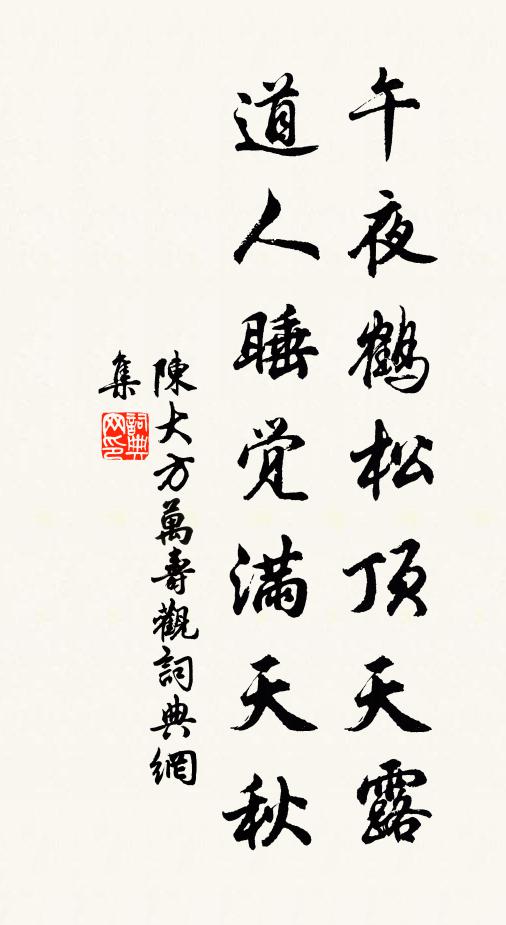 午夜鶴松頂天露
道人睡觉滿天秋
陳大方萬壽觀詞典網
集
詞典网印